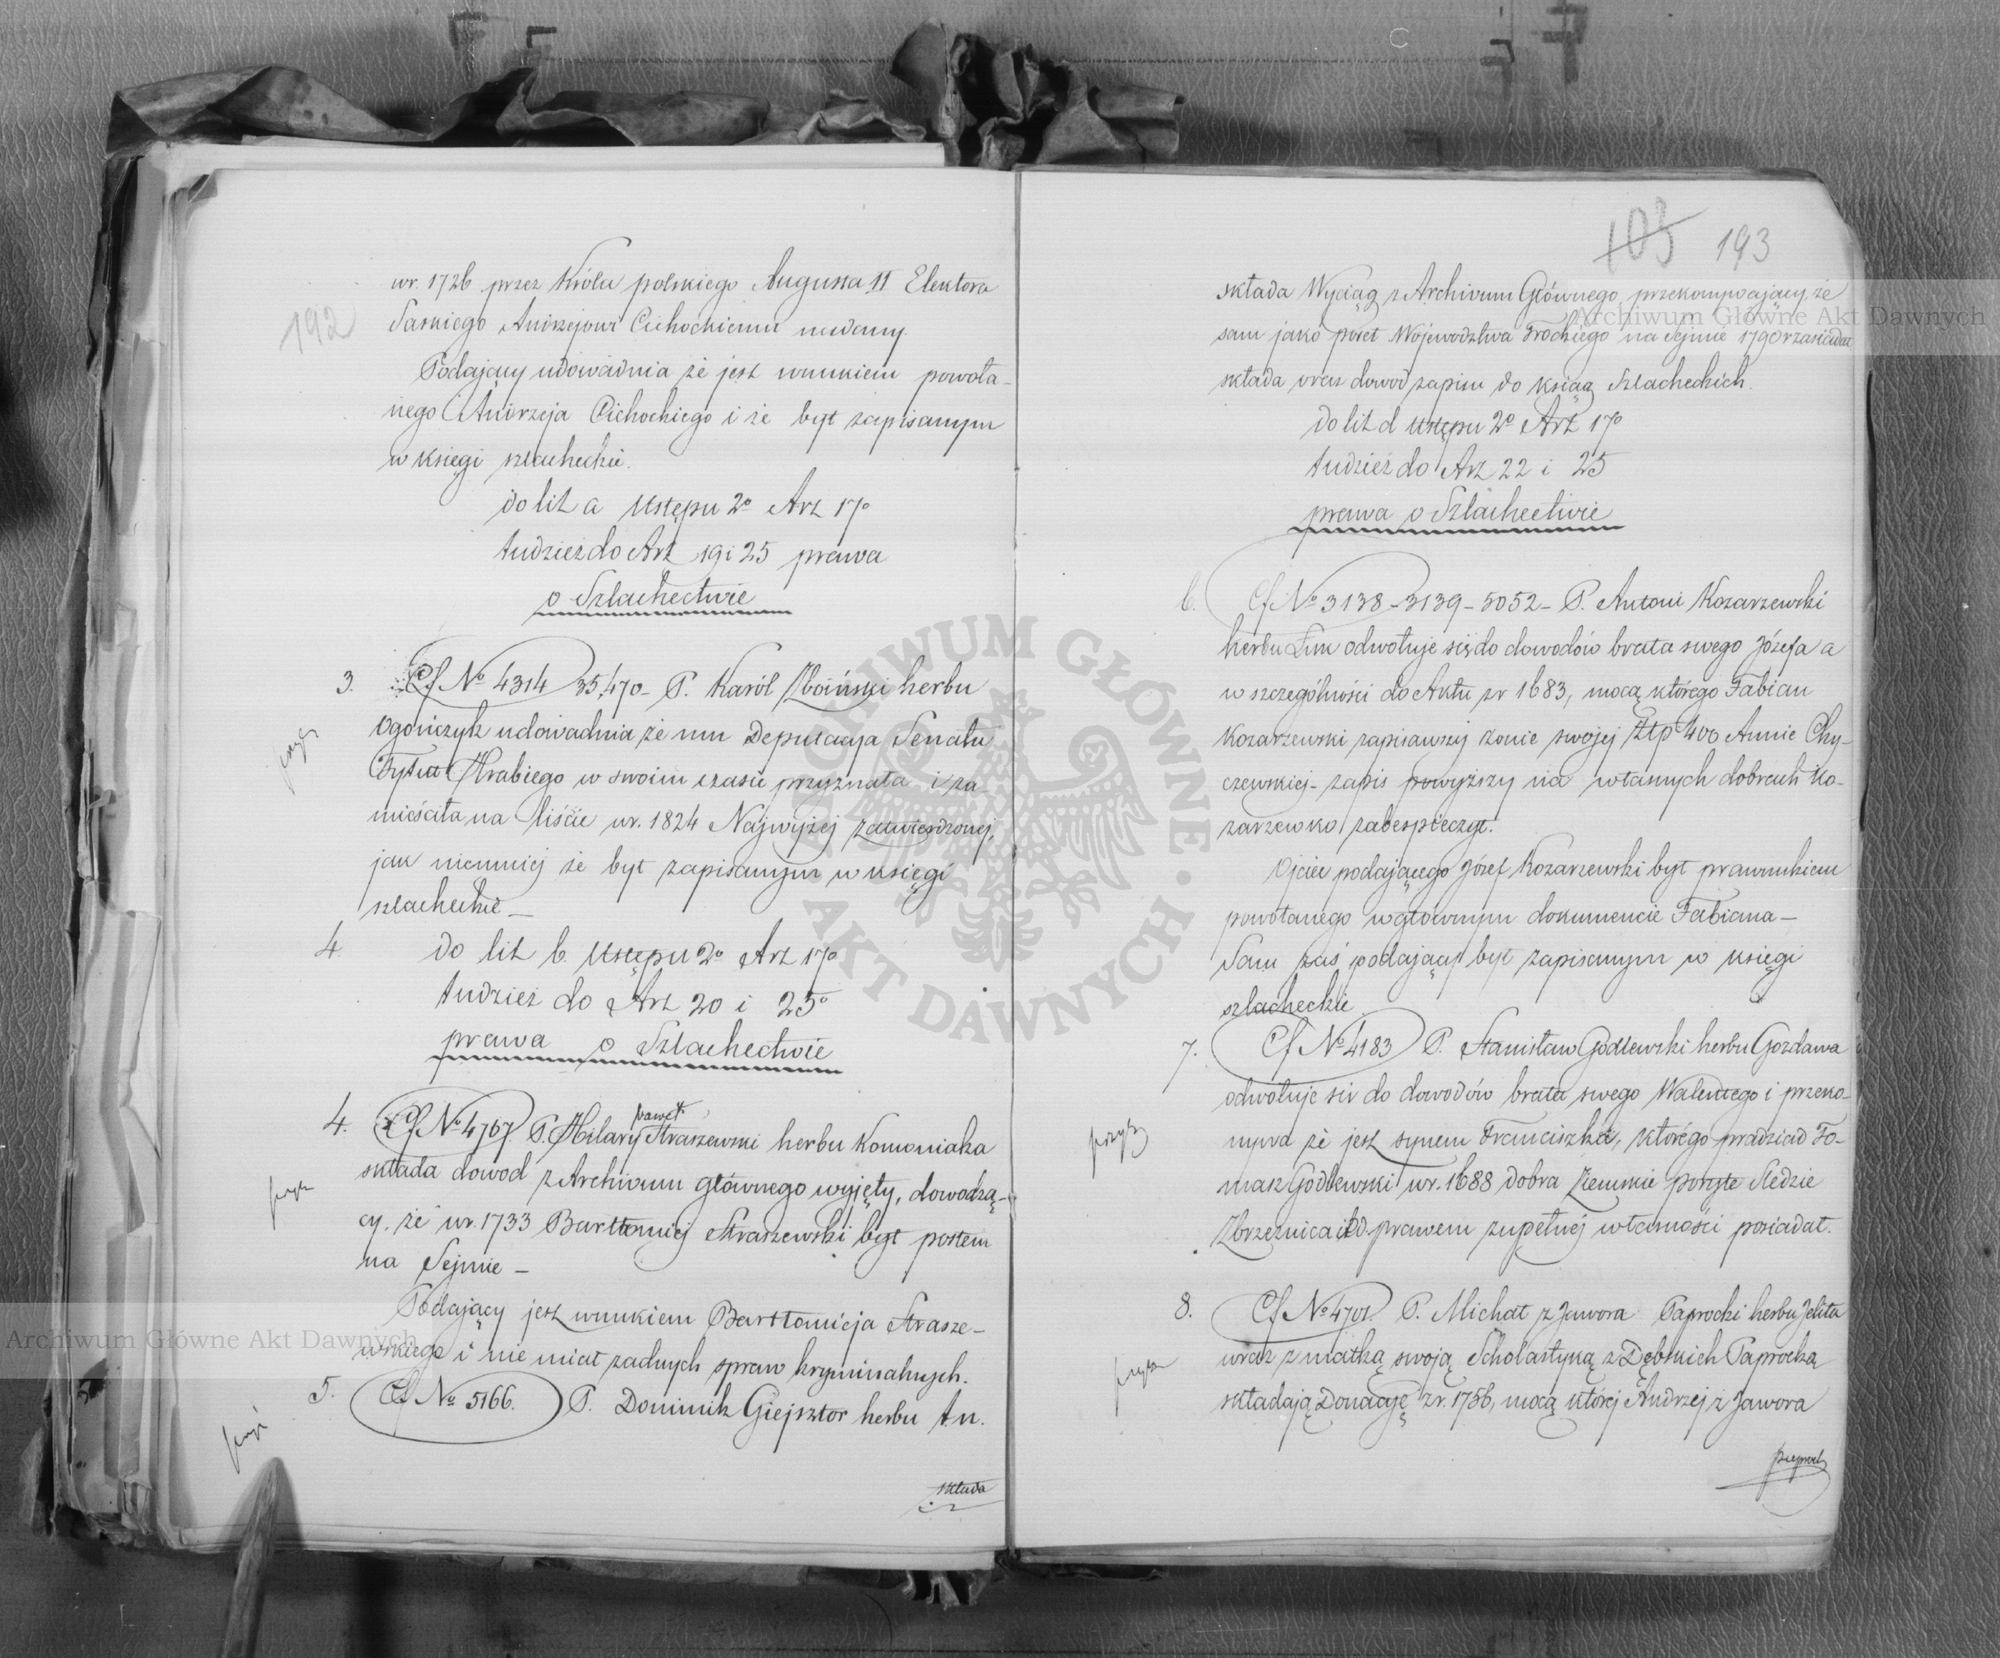 192
wr. 1726 przez Króla polskiego Augusta II Elektora
Saskiego Andrzejowi Cichockiemu nadany.
Podający udowadnia że jest wnukiem powoła-
nego Andrzeja Cichockiego i że był zapisanym
w księgi szlacheckie.
do lit a Ustępu 2o Art 17o
tudzież do Art 19 i 25 prawa
o Szlachectwie
3. Cf No 4314 35,470 - P. Karól Zboiński herbu
Ogończyk udowadnia że mu Deputacya Senatu
Tytuł Hrabiego w swoim czasie przyznała i za-
mieściła na liście wr. 1824 Najwyżej zatwierdzonej,
jak niemniej że był zapisanym w księgi
szlacheckie —
4. do lit b. Ustępu 2o Art 17o
tudzież do Art 20 i 25o
prawa o Szlachectwie
4. Cf No 4767 P. Hilary Paweł Straszewski herbu Komoniaka
składa dowod z Archivum głównego wyjęty, dowodzą-
cy, że wr. 1733 Bartłomiej Straszewski był posłem
na Sejmie —
Podający jest wnukiem Bartłomieja Strasze-
wskiego i nie miał żadnych spraw kryminalnych.
5. Cf No 5166. P. Dominik Giejsztor herbu t. n.
składa
103 193
składa Wyciąg z Archivum Głównego, przekonywający że
sam jako poseł Województwa Trockiego na Sejmie 1790 r zasiadał
składa oraz dowod zapisu do ksiąg Szlacheckich.
do lit d Ustępu 2o Art 17o
tudzież do Art 22 i 25
prawa o Szlachectwie
6. Cf No 3138 - 3139 - 5052 - P. Antoni Kozarzewski
herbu Lim odwołuje się do dowodów brata swego Józefa a
w szczególności do Aktu zr 1683, mocą którego Fabian
Kozarzewski zapisawszy żonie swojej Złp 400 Annie Chy-
czewskiej - zapis powyższy na własnych dobrach Ko-
zarzewko zabespieczył.
Ojciec podającego Józef Kozarzewski był prawnukiem
powołanego w głównym dokumencie Fabiana —
Sam zaś podający był zapisanym w księgi
szlacheckie
7. Cf No 4183 P. Stanisław Godlewski herbu Gozdawa
odwołuje się do dowodów brata swego Walentego i przeko-
nywa że jest synem Franciszka, którego pradziad To-
masz Godlewski wr. 1688 dobra Ziemskie poryte Siedzie
Zbrzeźnica itd prawem zupełnej własności posiadał.
8. Cf No 4701. P. Michał z Jawora Paprocki herbu Jelita
wraz z matką swoją Scholastyką z Dębskich Paprocką
składają Donacyę zr. 1756, mocą której Andrzej z Jawora
ARCHIWUM GŁÓWNE AKT DAWNYCH
Archiwum Główne Akt Dawnych
Archiwum Główne Akt Dawnych